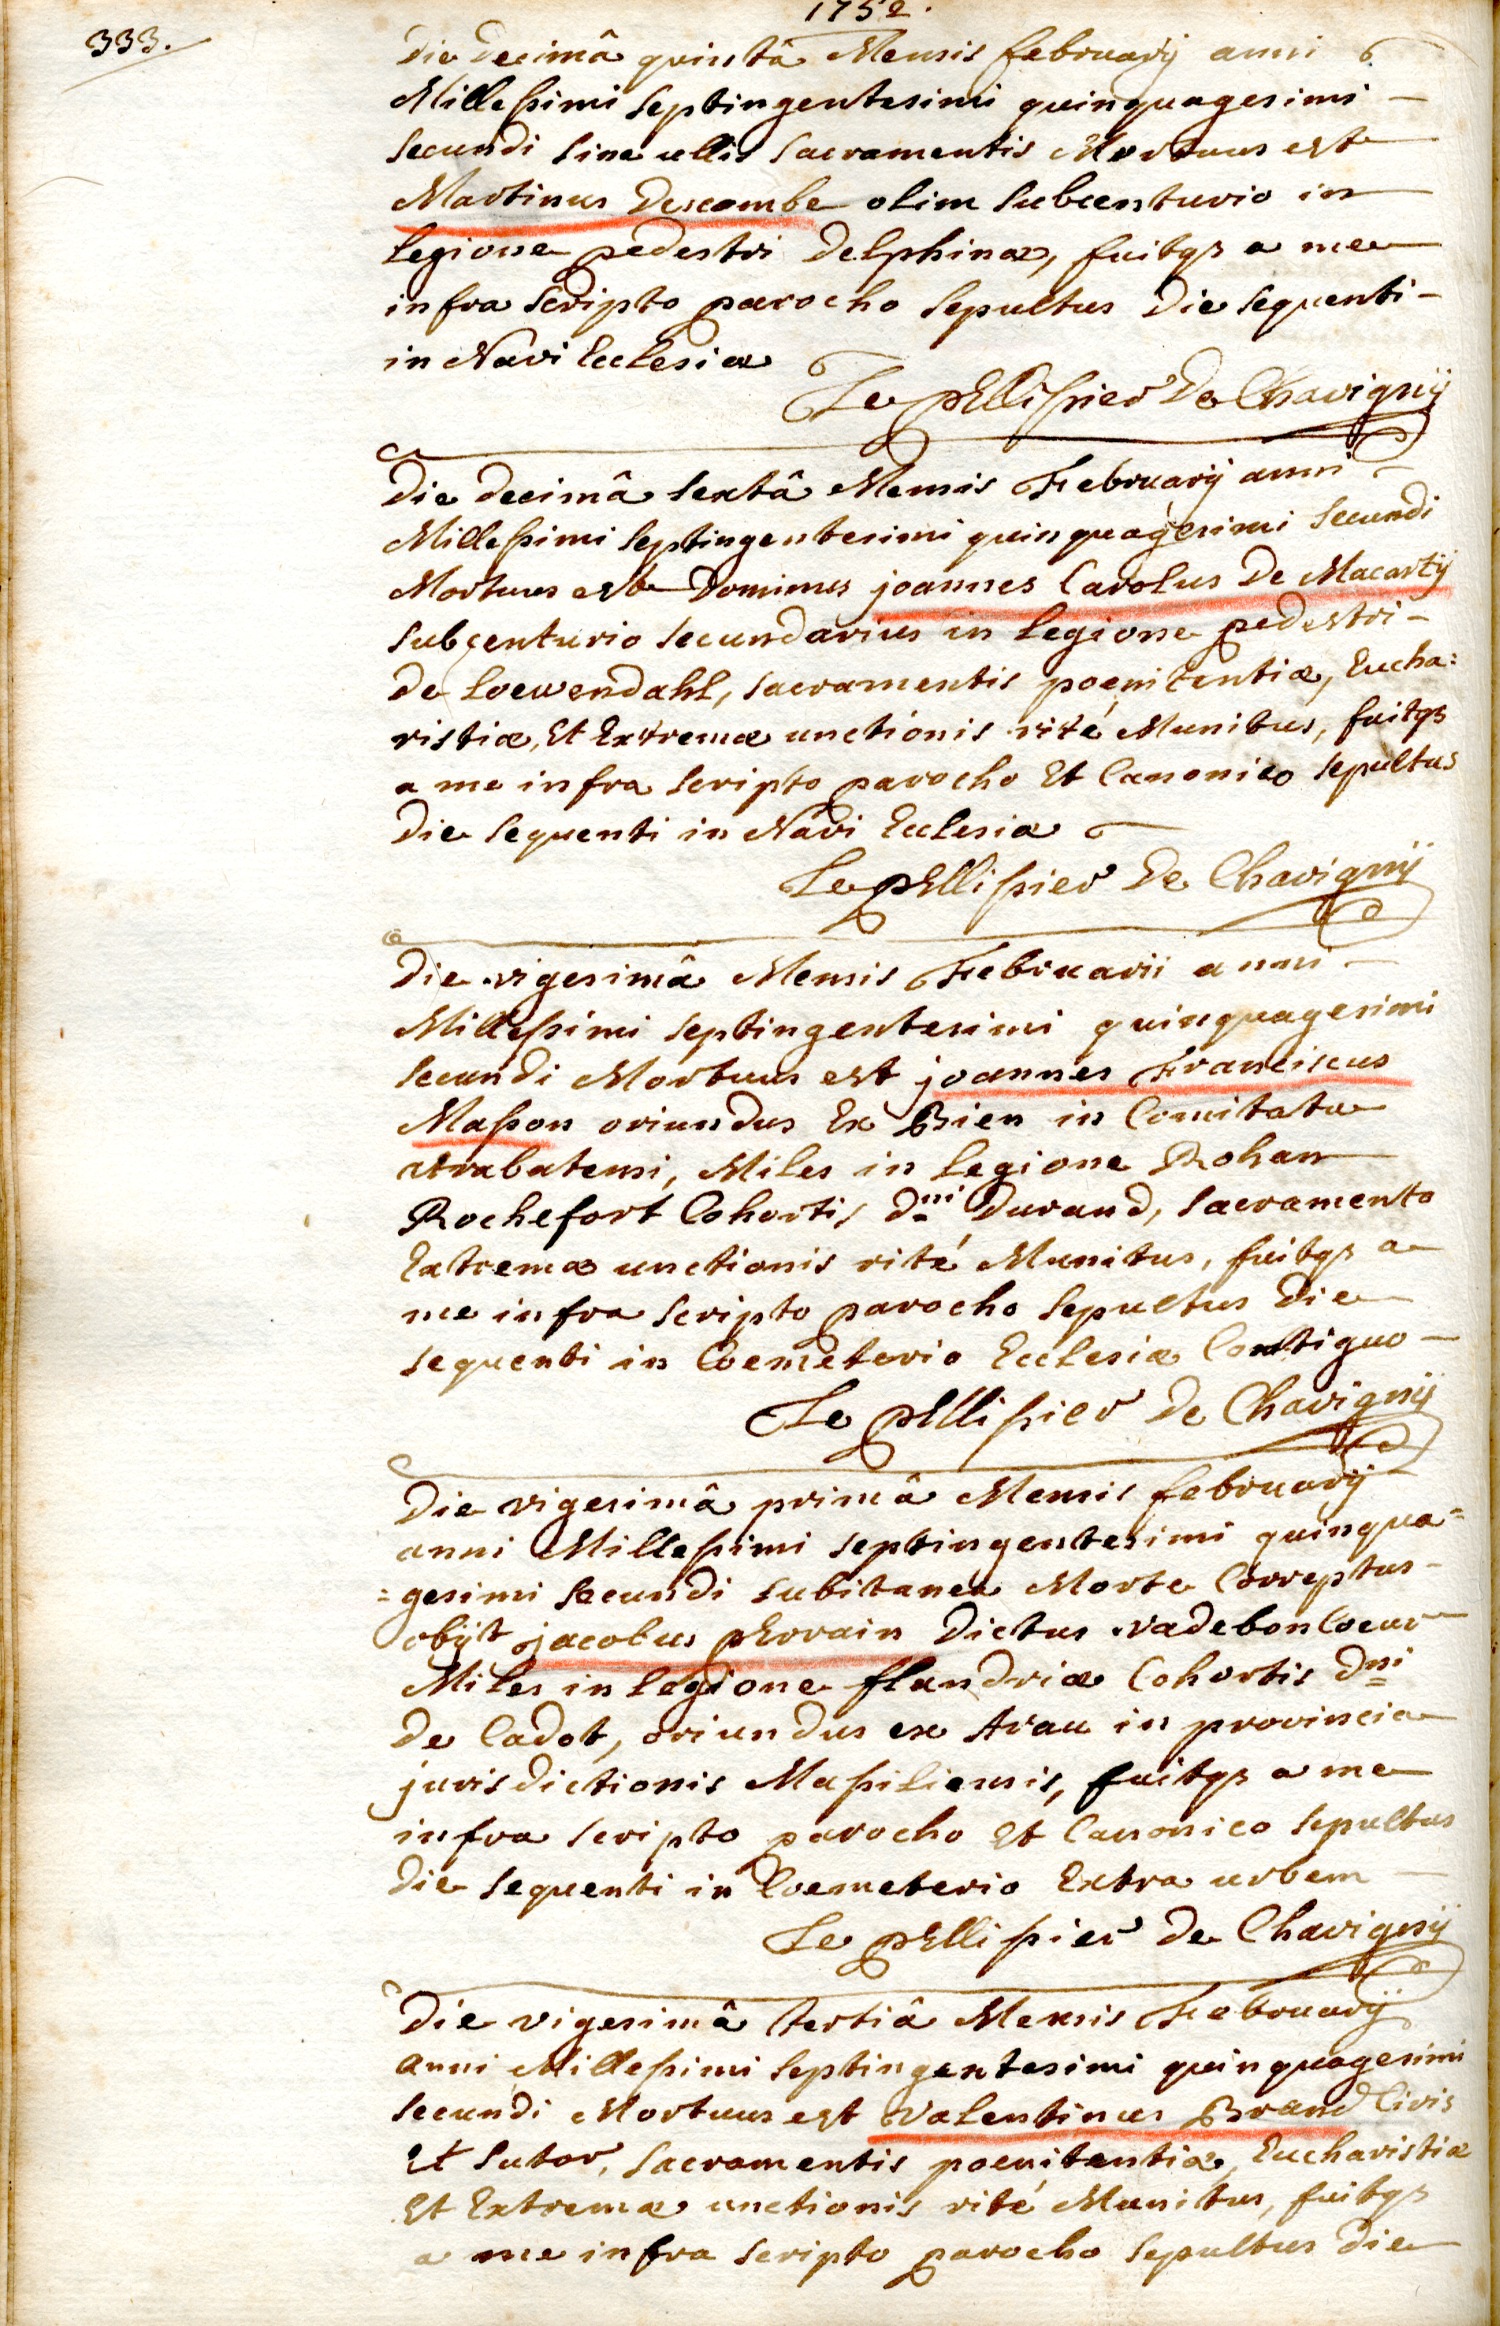 1752.
333.
Die Decimâ quintâ Mensis februarij anni
Millessimi septingentesimi quinquagesimi -
secundi sine ullis sacramentis Mortuus est
Martinus Descombe olim subcenturio in
legione pedestri Delphinæ, fuitqz a me
infra scripto parocho sepultus Die sequenti -
in Navi Ecclesiæ
Le pEllissier De Chavignÿ
Die decimâ sextâ Mensis Februarij anni -
Millessimi septingentesimi quinquagesimi secundi
Mortuus est Dominus joannes Carolus De Macartÿ
subcenturio secundarius in legione pedestri -
de Loewendahl, sacramentis poenitentiæ, Eucha=
ristiæ, Et Extremæ unctionis rité Munitus, fuitqz
a me infra scripto parocho Et Canonico sepultus
Die sequenti in Navi Ecclesiæ
Le pEllissier De Chavignÿ
Die vigesimâ Mensis Februarii anni -
Millessimi septingentesimi quinquagesimi
secundi Mortuus est joannes Franciscus
Masson oriundus Ex Bien in Comitatu
atrabatensi, Miles in legione Rohan
Rochefort Cohortis dni Durand, sacramento
Extremæ unctionis rité Munitus, fuitqz a
me infra scripto parocho sepultus Die
sequenti in Coemeterio Ecclesiæ Contiguo -
Le pEllissier De Chavignÿ
Die vigesimâ primâ Mensis februarij
anni Millessimi septingentesimi quinqua=
=gesimi secundi subitanea Morte Correptus -
obijt jacobus pErrain Dictus vadeboncoeur
Miles in legione flandriæ Cohortis Dni
De Cadot, oriundus ex Arau in provincia
jurisdictionis Massiliensis, fuitqz a me
infra scripto parocho Et Canonico sepultus
Die sequenti in Coemeterio Extra urbem -
Le pEllissier De Chavignÿ
Die vigesimâ tertiâ Mensis Februarij
anni Millessimi septingentesimi quinquagesimi
secundi Mortuus est Valentinus Brand Civis
Et sutor, sacramentis poenitentiæ, Eucharistiæ
Et Extremæ unctionis rité Munitus, fuitqz
a me infra scripto parocho sepultus Die